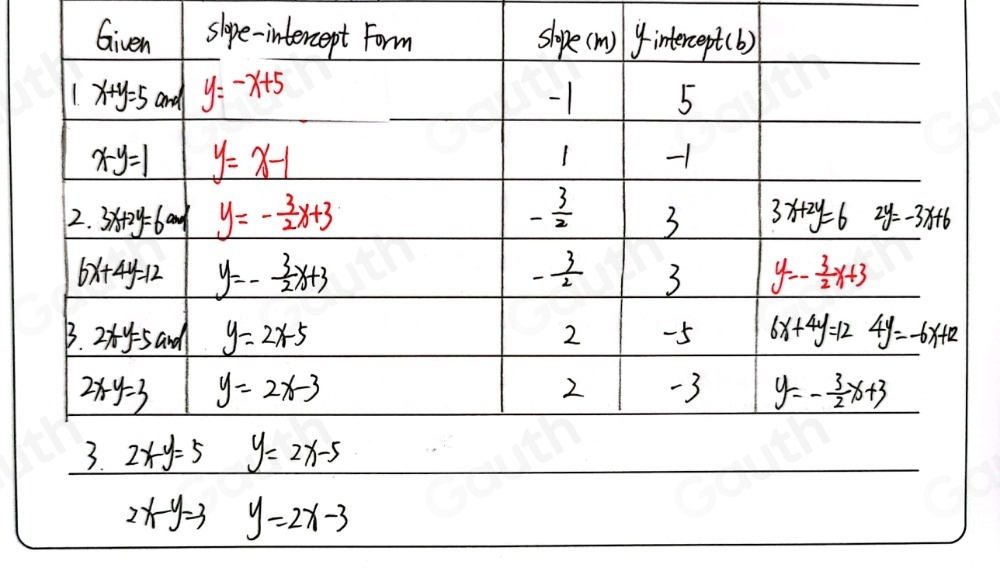 Given slope-intercept Form slope (m) y-intercept (b)
1. x+y=5 and y=-x+5 -1 5
x-y=1 y=x-1 1 -1
2. 3x+2y=6 and y=-3/2x+3 -3/2 3 3x+2y=6 2y=-3x+6
6x+4y=12 y=-3/2x+3 -3/2 3 y=-3/2x+3
3. 2x-y=5 and y=2x-5 2 -5 6x+4y=12 4y=-6x+12
2x-y=3 y=2x-3 2 -3 y=-3/2x+3
3. 2x-y=5 y=2x-5
2x-y=3 y=2x-3
Gauth